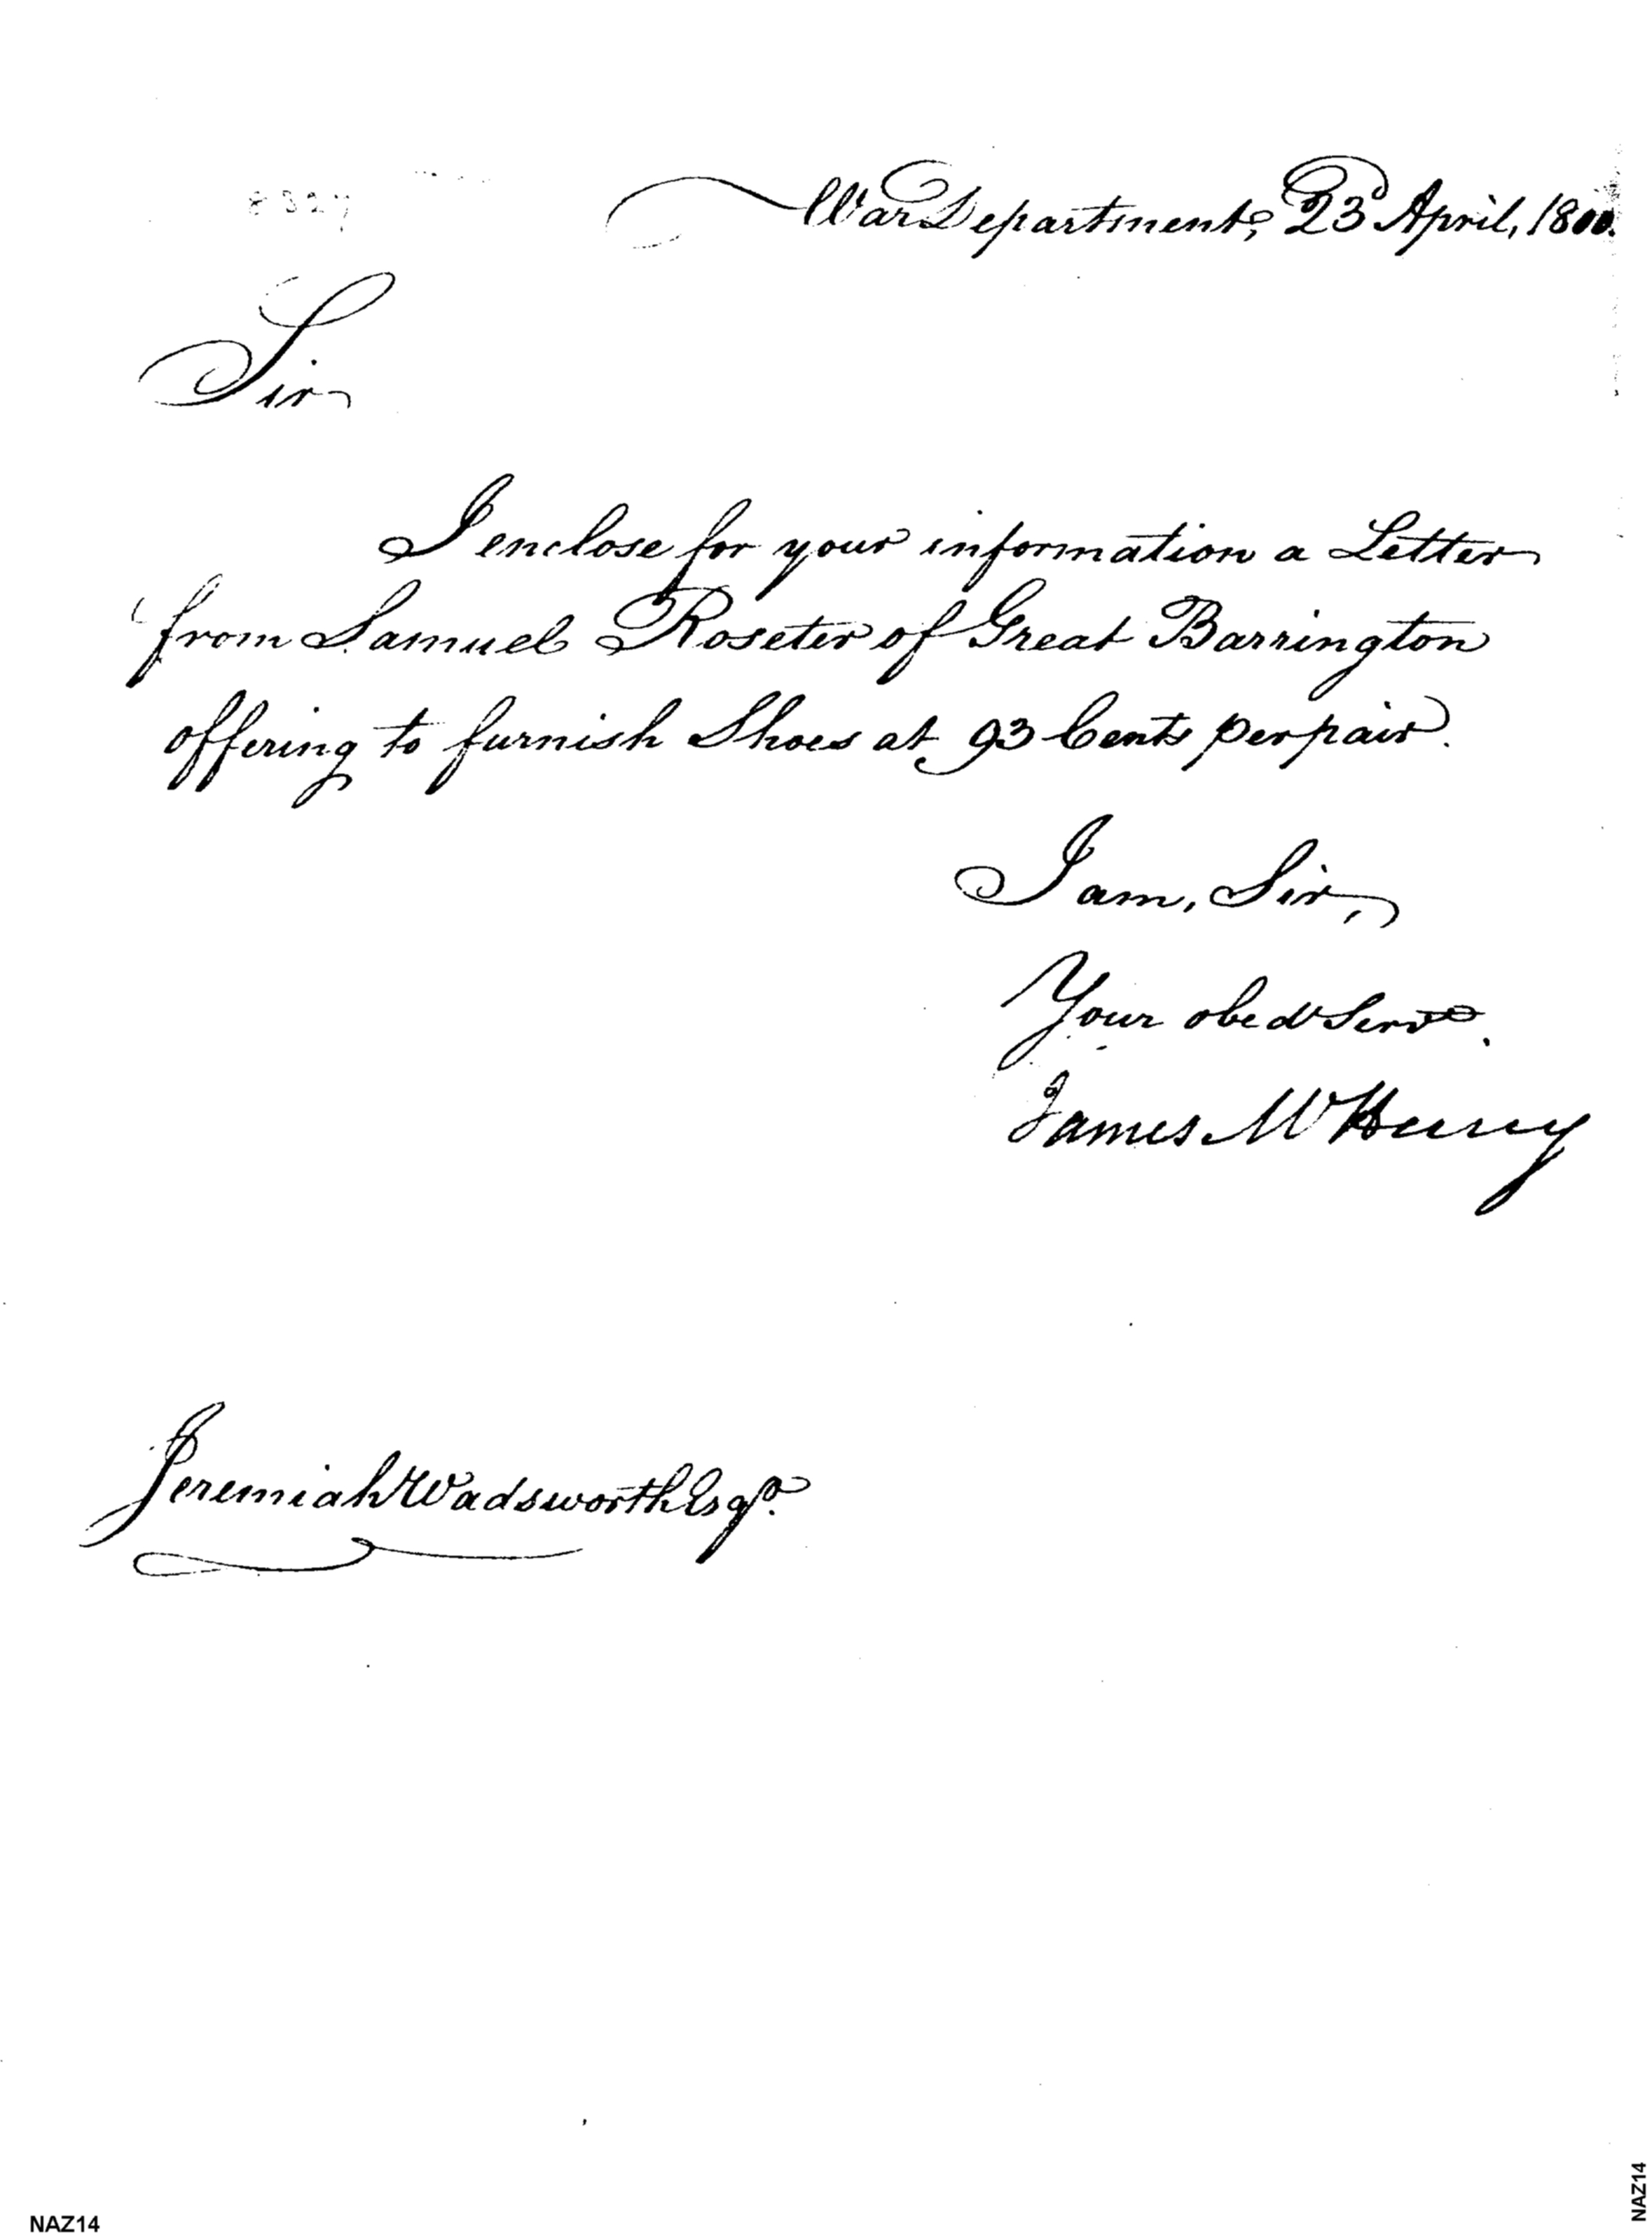 War Department, 23d April, 1800.
Sir
I enclose for your information a Letter
from Samuel Roseter of Great Barrington
offering to furnish Shoes at 93 Cents per pair.
I am, Sir,
Your obedt Servt.
James McHenry
Jeremiah Wadsworth Esqr.
NAZ14
NAZ14